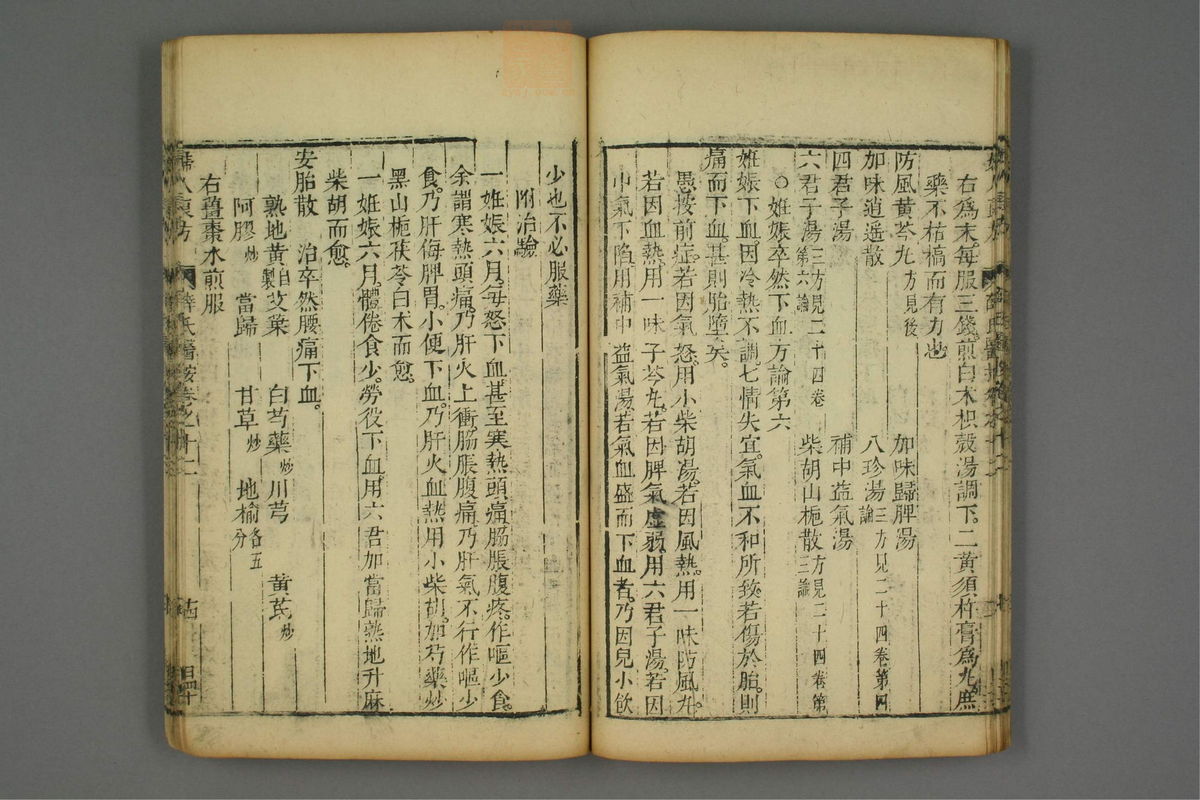 右爲末每服三錢煎白木枳殻湯調下二黄須杵膏爲九庶
藥不枯槁而有力也
防風黄芩九方見後 加味歸脾湯
加味逍遥散 八珍湯三方見二十四卷第四論
四君子湯 補中益氣湯
六君子湯三方見二十四卷第六論 柴胡山梔散方見二十四卷第三論
○姙娠卒然下血方論第六
姙娠下血因冷熱不調七情失宜氣血不和所致若傷於胎則
痛而下血甚則胎墮矣
愚按前症若因氣怒用小柴胡湯若因風熱用一味防風九
若因血熱用一味子芩九若因脾氣虚弱用六君子湯若因
中氣下陷用補中益氣湯若氣血盛而下血者乃因兒小飲
少也不必服藥
附治驗
一姙娠六月每怒下血甚至寒熱頭痛脇脹腹疼作嘔少食
余謂寒熱頭痛乃肝火上衝脇脹腹痛乃肝氣不行作嘔少
食乃肝侮脾胃小便下血乃肝火血熱用小柴胡加芍藥炒
黑山梔茯苓白木而愈
一姙娠六月體倦食少勞役下血用六君加當歸熟地升麻
柴胡而愈
安胎散 治卒然腰痛下血
熟地黄 艾葉 白芍藥炒 川芎 黄芪炒
阿膠炒 當歸 甘草炒 地榆各五分
右薑棗水煎服
婦人良方 薛氏醫按卷之十二